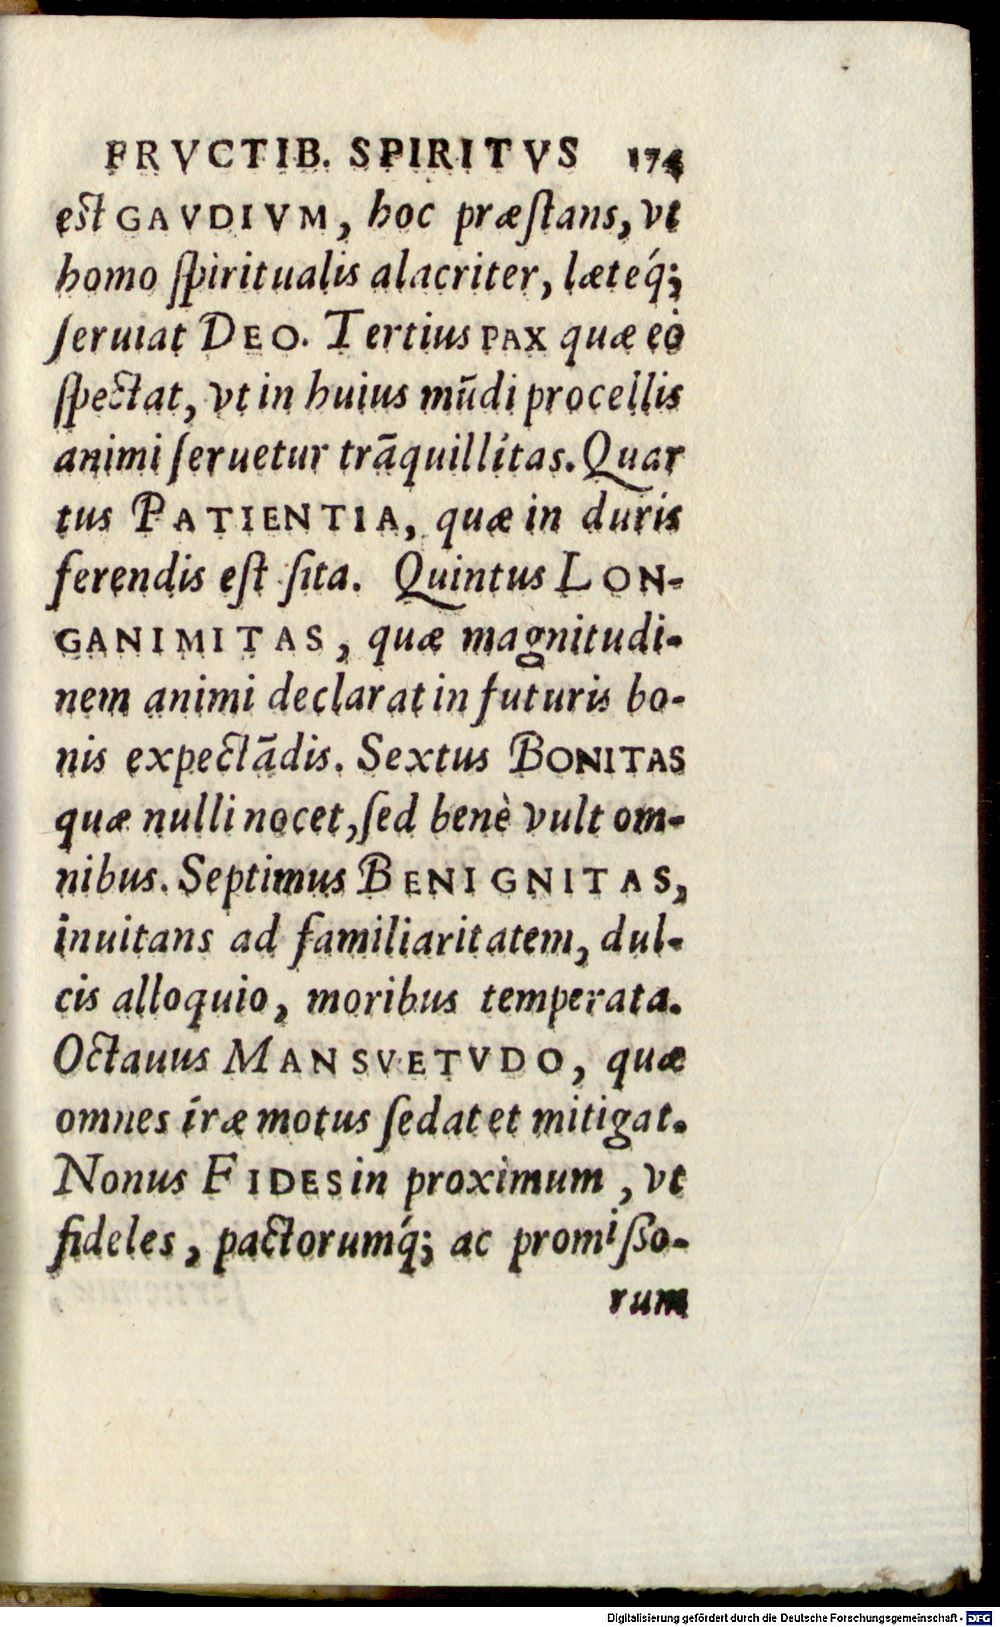 FRVCTIB. SPIRITVS 174
est GAVDIVM, hoc præſtans, vt
homo ſpiritualis alacriter, læteq́;
ſeruiat DEO. Tertius PAX quæ eò
ſpectat, vt in huius mūdi procellis
animi ſeruetur trāquillitas. Quar
tus PATIENTIA, quæ in duris
ferendis eſt ſita. Quintus LON-
GANIMITAS, quæ magnitudi-
nem animi declarat in futuris bo-
nis expectādis. Sextus BONITAS
quæ nulli nocet, ſed benè vult om-
nibus. Septimus BENIGNITAS,
inuitans ad familiaritatem, dul-
cis alloquio, moribus temperata.
Octauus MANSVETVDO, quæ
omnes iræ motus ſedat et mitigat.
Nonus FIDES in proximum, vt
fideles, pactorumq́; ac promiſſo-
rum
Digitalisierung gefördert durch die Deutsche Forschungsgemeinschaft - DFG